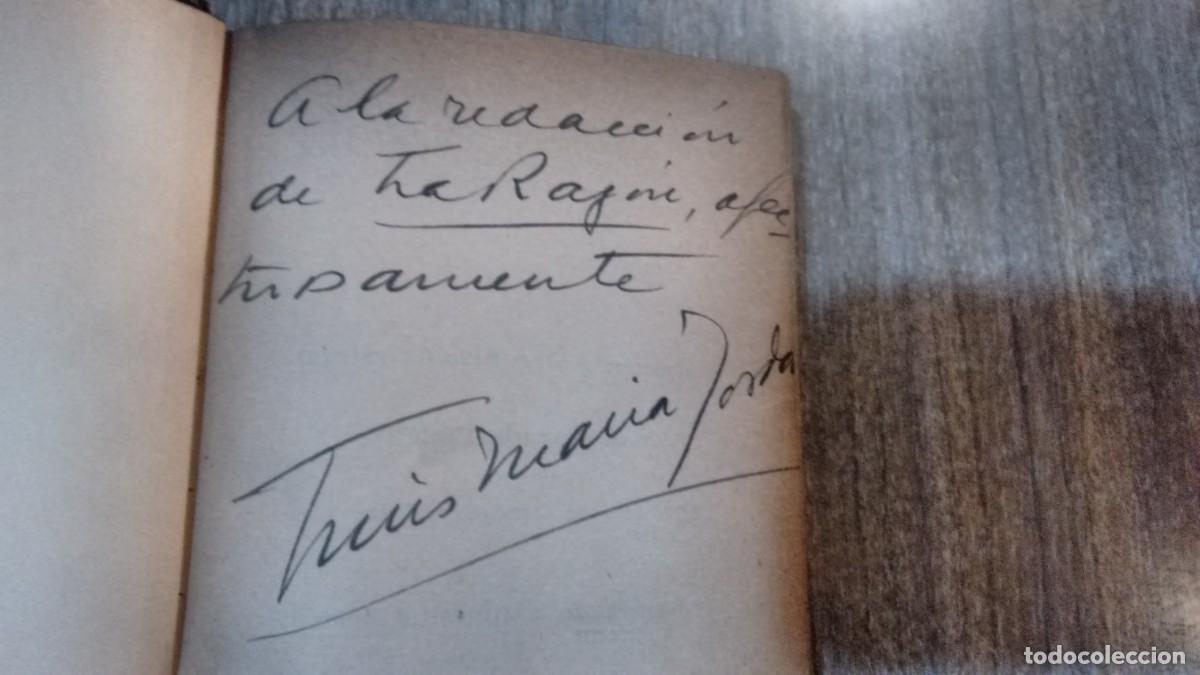 A la redacción
de La Razón, afec-
tuosamente
Luis Maria Jordá
todocoleccion